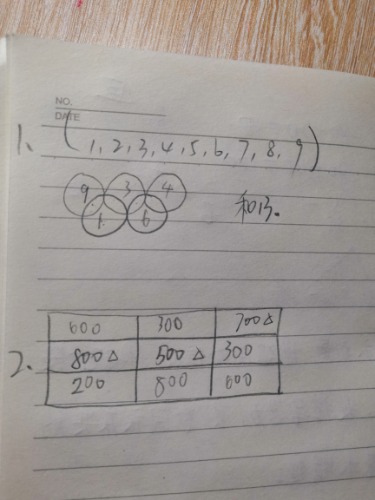 NO.
DATE
1、(1,2,3,4,5,6,7,8,9)
9 3 4
1 6 和13.
600 300 700△
2、800△ 500△ 300
200 800 600